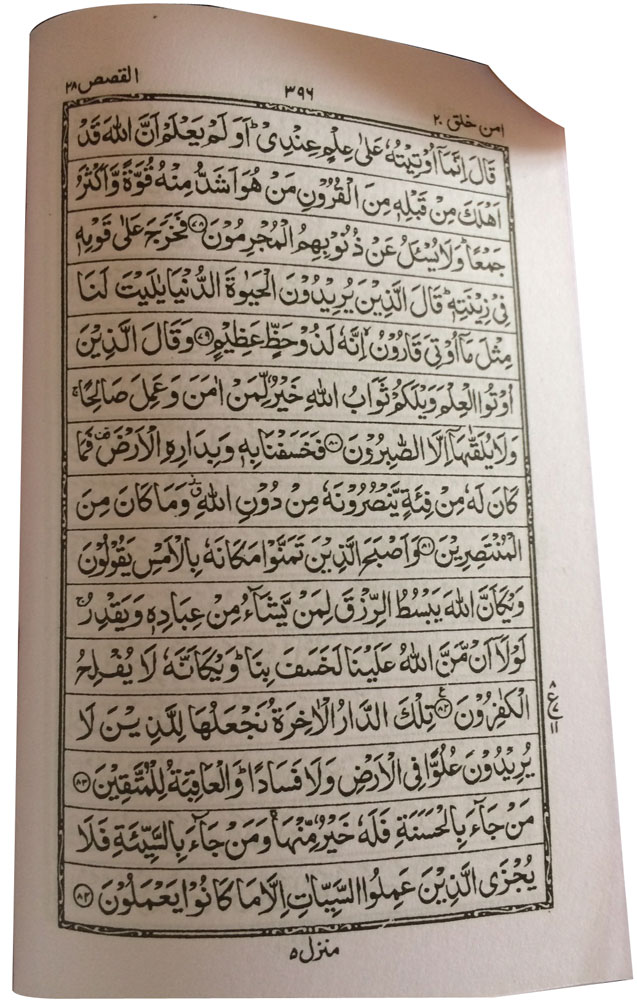 القصص ٢٨
٣٩٦
امن خلق ٢٠
قَالَ اِنَّمَاۤ اُوْتِيْتُهٗ عَلٰى عِلْمٍ عِنْدِىْ ؕ اَوَ لَمْ يَعْلَمْ اَنَّ اللّٰهَ قَدْ
اَهْلَكَ مِنْ قَبْلِهٖ مِنَ الْقُرُوْنِ مَنْ هُوَ اَشَدُّ مِنْهُ قُوَّةً وَّاَكْثَرُ
جَمْعًا ؕ وَلَا يُسْـَٔلُ عَنْ ذُنُوْبِهِمُ الْمُجْرِمُوْنَ ۝٧٨ فَخَرَجَ عَلٰى قَوْمِهٖ
فِىْ زِيْنَتِهٖ ؕ قَالَ الَّذِيْنَ يُرِيْدُوْنَ الْحَيٰوةَ الدُّنْيَا يٰلَيْتَ لَنَا
مِثْلَ مَاۤ اُوْتِىَ قَارُوْنُ ۙ اِنَّهٗ لَذُوْ حَظٍّ عَظِيْمٍ ۝٧٩ وَقَالَ الَّذِيْنَ
اُوْتُوا الْعِلْمَ وَيْلَكُمْ ثَوَابُ اللّٰهِ خَيْرٌ لِّمَنْ اٰمَنَ وَعَمِلَ صَالِحًا ۚ
وَلَا يُلَقّٰىهَاۤ اِلَّا الصّٰبِرُوْنَ ۝٨٠ فَخَسَفْنَا بِهٖ وَبِدَارِهِ الْاَرْضَ ۟ فَمَا
كَانَ لَهٗ مِنْ فِئَةٍ يَّنْصُرُوْنَهٗ مِنْ دُوْنِ اللّٰهِ ۗ وَمَا كَانَ مِنَ
الْمُنْتَصِرِيْنَ ۝٨١ وَاَصْبَحَ الَّذِيْنَ تَمَنَّوْا مَكَانَهٗ بِالْاَمْسِ يَقُوْلُوْنَ
وَيْكَاَنَّ اللّٰهَ يَبْسُطُ الرِّزْقَ لِمَنْ يَّشَآءُ مِنْ عِبَادِهٖ وَيَقْدِرُ ۚ
لَوْلَاۤ اَنْ مَّنَّ اللّٰهُ عَلَيْنَا لَخَسَفَ بِنَا ؕ وَيْكَاَنَّهٗ لَا يُفْلِحُ
الْكٰفِرُوْنَ ۝٨٢ تِلْكَ الدَّارُ الْاٰخِرَةُ نَجْعَلُهَا لِلَّذِيْنَ لَا
يُرِيْدُوْنَ عُلُوًّا فِى الْاَرْضِ وَلَا فَسَادًا ؕ وَالْعَاقِبَةُ لِلْمُتَّقِيْنَ ۝٨٣
مَنْ جَآءَ بِالْحَسَنَةِ فَلَهٗ خَيْرٌ مِّنْهَا ۚ وَمَنْ جَآءَ بِالسَّيِّئَةِ فَلَا
يُجْزَى الَّذِيْنَ عَمِلُوا السَّيِّاٰتِ اِلَّا مَا كَانُوْا يَعْمَلُوْنَ ۝٨٤
منزل ٥